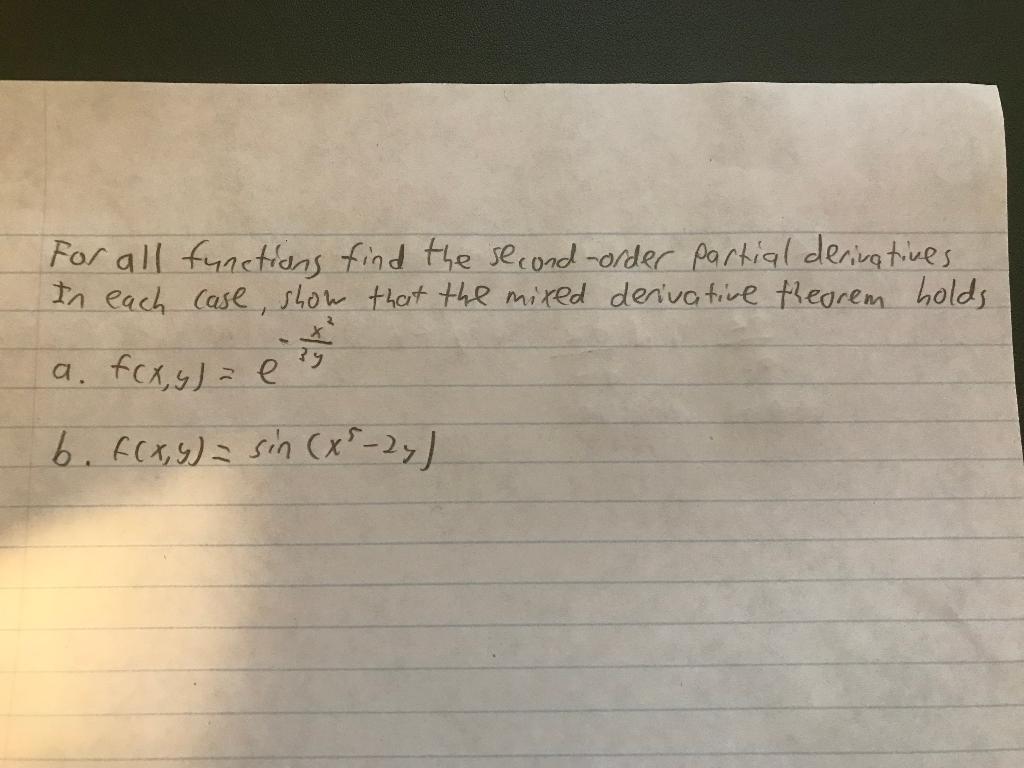 For all functions find the second-order partial derivatives
In each case, show that the mixed derivative theorem holds
a. f(x,y) = e^{-\frac{x^2}{3y}}
b. f(x,y) = sin (x^5-2y)